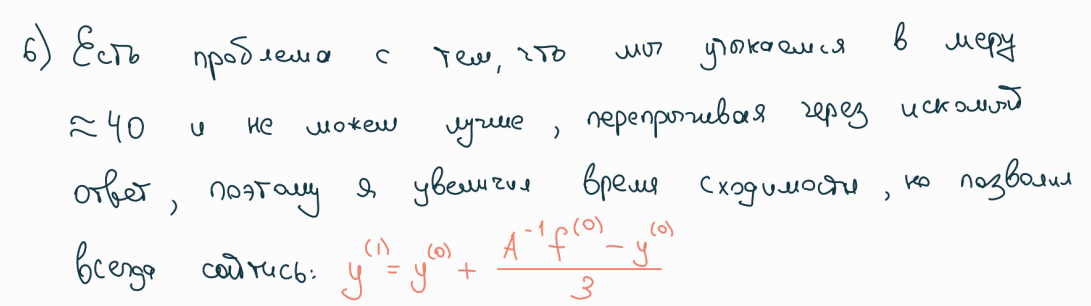 б) Есть проблема с тем, что мы утыкаемся в меру
≈40 и не можем лучше, перепрыгивая через искомый
ответ, поэтому я увеличил время сходимости, но позволил
всегда сойтись: y^{(1)} = y^{(0)} + \frac{A^{-1}f^{(0)} - y^{(0)}}{3}